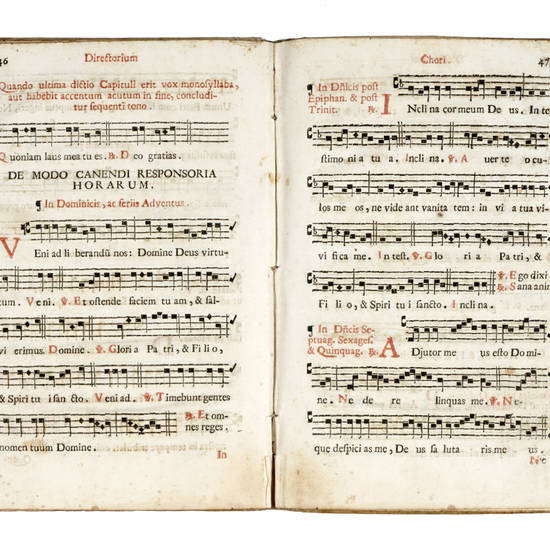 46 Directorium
Quando ultima dictio Capituli erit vox monosyllaba,
aut habebit accentum acutum in fine, concludi-
tur sequenti tono.
Quoniam laus mea tu es. ℟. Deo gratias.
DE MODO CANENDI RESPONSORIA
HORARUM.
¶ In Dominicis, ac feriis Adventus.
VEni ad liberandũ nos: Domine Deus virtu-
tum. Veni. ℣. Et ostende faciem tuam, & sal-
vi erimus. Domine. ℣. Gloria Patri, & Filio,
& Spiritui sancto. Veni ad. ℣. Timebunt gentes
℟. Et om-
nes reges.
nomen tuum Domine.
In
Chori. 47
¶ In Dñicis post
Epiphan. & post
Trinit. ℟.
INclina cor meum Deus. In te-
stimonia tua. Inclina. ℣. Averte ocu-
los meos, ne videant vanitatem: in via tua vi-
vifica me. In test. ℣. Gloria Patri, &
℣. Ego dixi
℟. Sana anim
Filio, & Spiritui sancto. Inclina.
¶ In Dñcis Se-
ptuag. Sexages.
& Quinquag. ℟.
ADjutor meus esto Domi-
ne. Ne derelinquas me. Ne-
que despicias me, Deus salutaris meus.
Ne